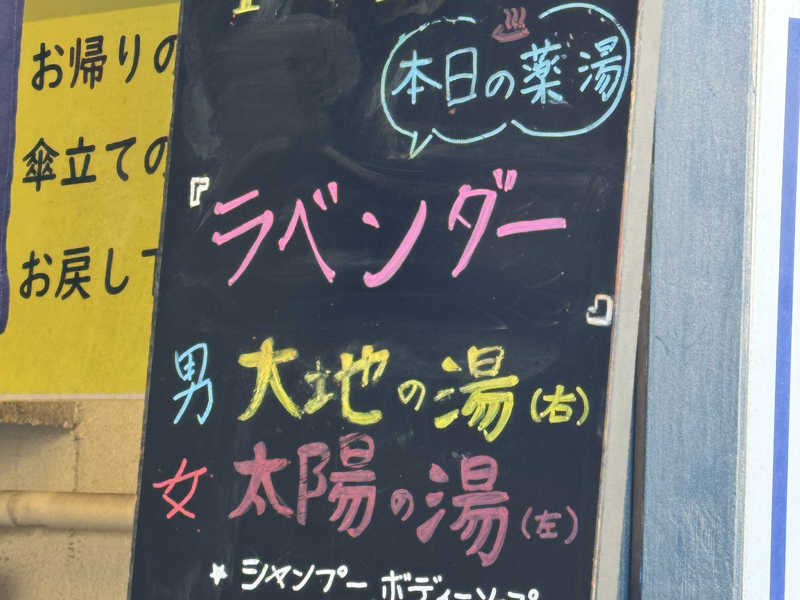 お帰りの
傘立ての
お戻して
本日の薬湯
『ラベンダー』
男 大地の湯(右)
女 太陽の湯(左)
★シャンプー ボディーソープ